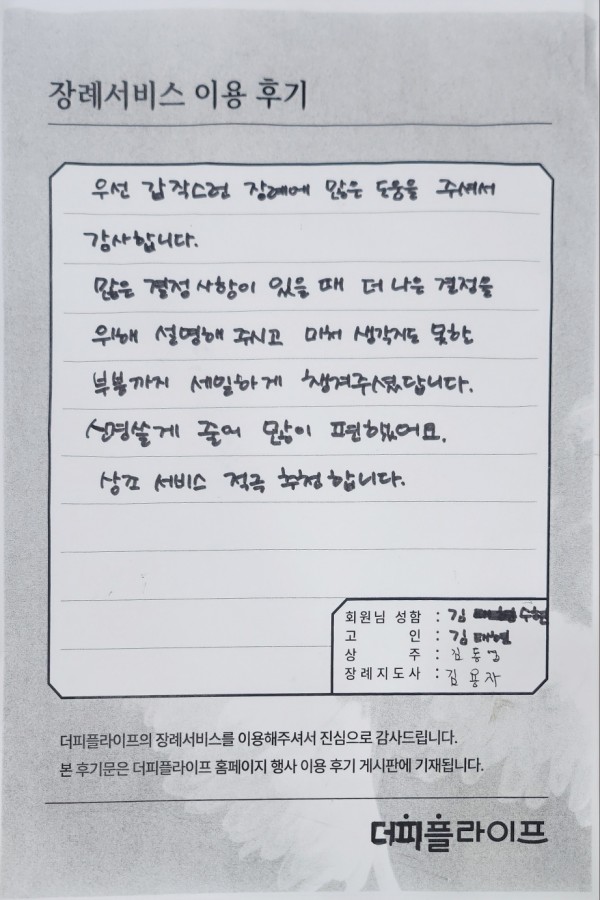 장례서비스 이용 후기
우선 갑작스런 장례에 많은 도움을 주셔서
감사합니다.
많은 결정사항이 있을 때 더 나은 결정을
위해 설명해 주시고 미처 생각지도 못한
부분까지 세밀하게 챙겨주셨답니다.
신경쓸게 줄어 많이 편했어요.
상조 서비스 적극 추천합니다.
회원님 성함 : 김 수현
고 인 : 김태현
상 주 : 김동
장례지도사 : 김용자
더피플라이프의 장례서비스를 이용해주셔서 진심으로 감사드립니다.
본 후기문은 더피플라이프 홈페이지 행사 이용 후기 게시판에 기재됩니다.
더피플라이프